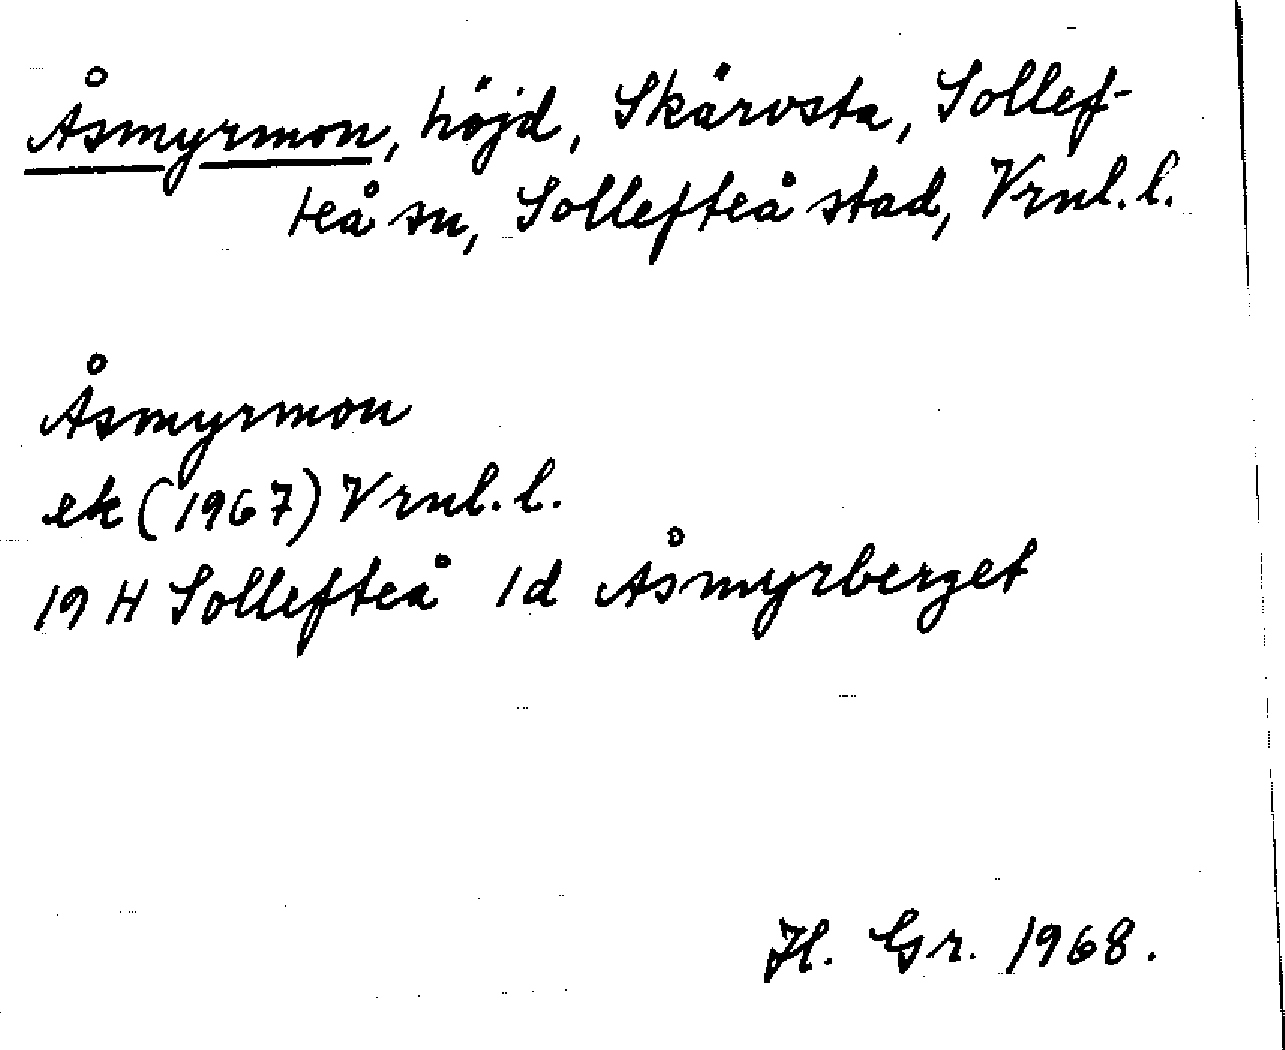 Åsmyrmon, höjd, Skärvsta, Sollef-
teå sn, Sollefteå stad, Vrnl. l.
Åsmyrmon
ek (1967) Vrnl. l.
19 H Sollefteå 1d Åsmyrberget
H. Gr. 1968.